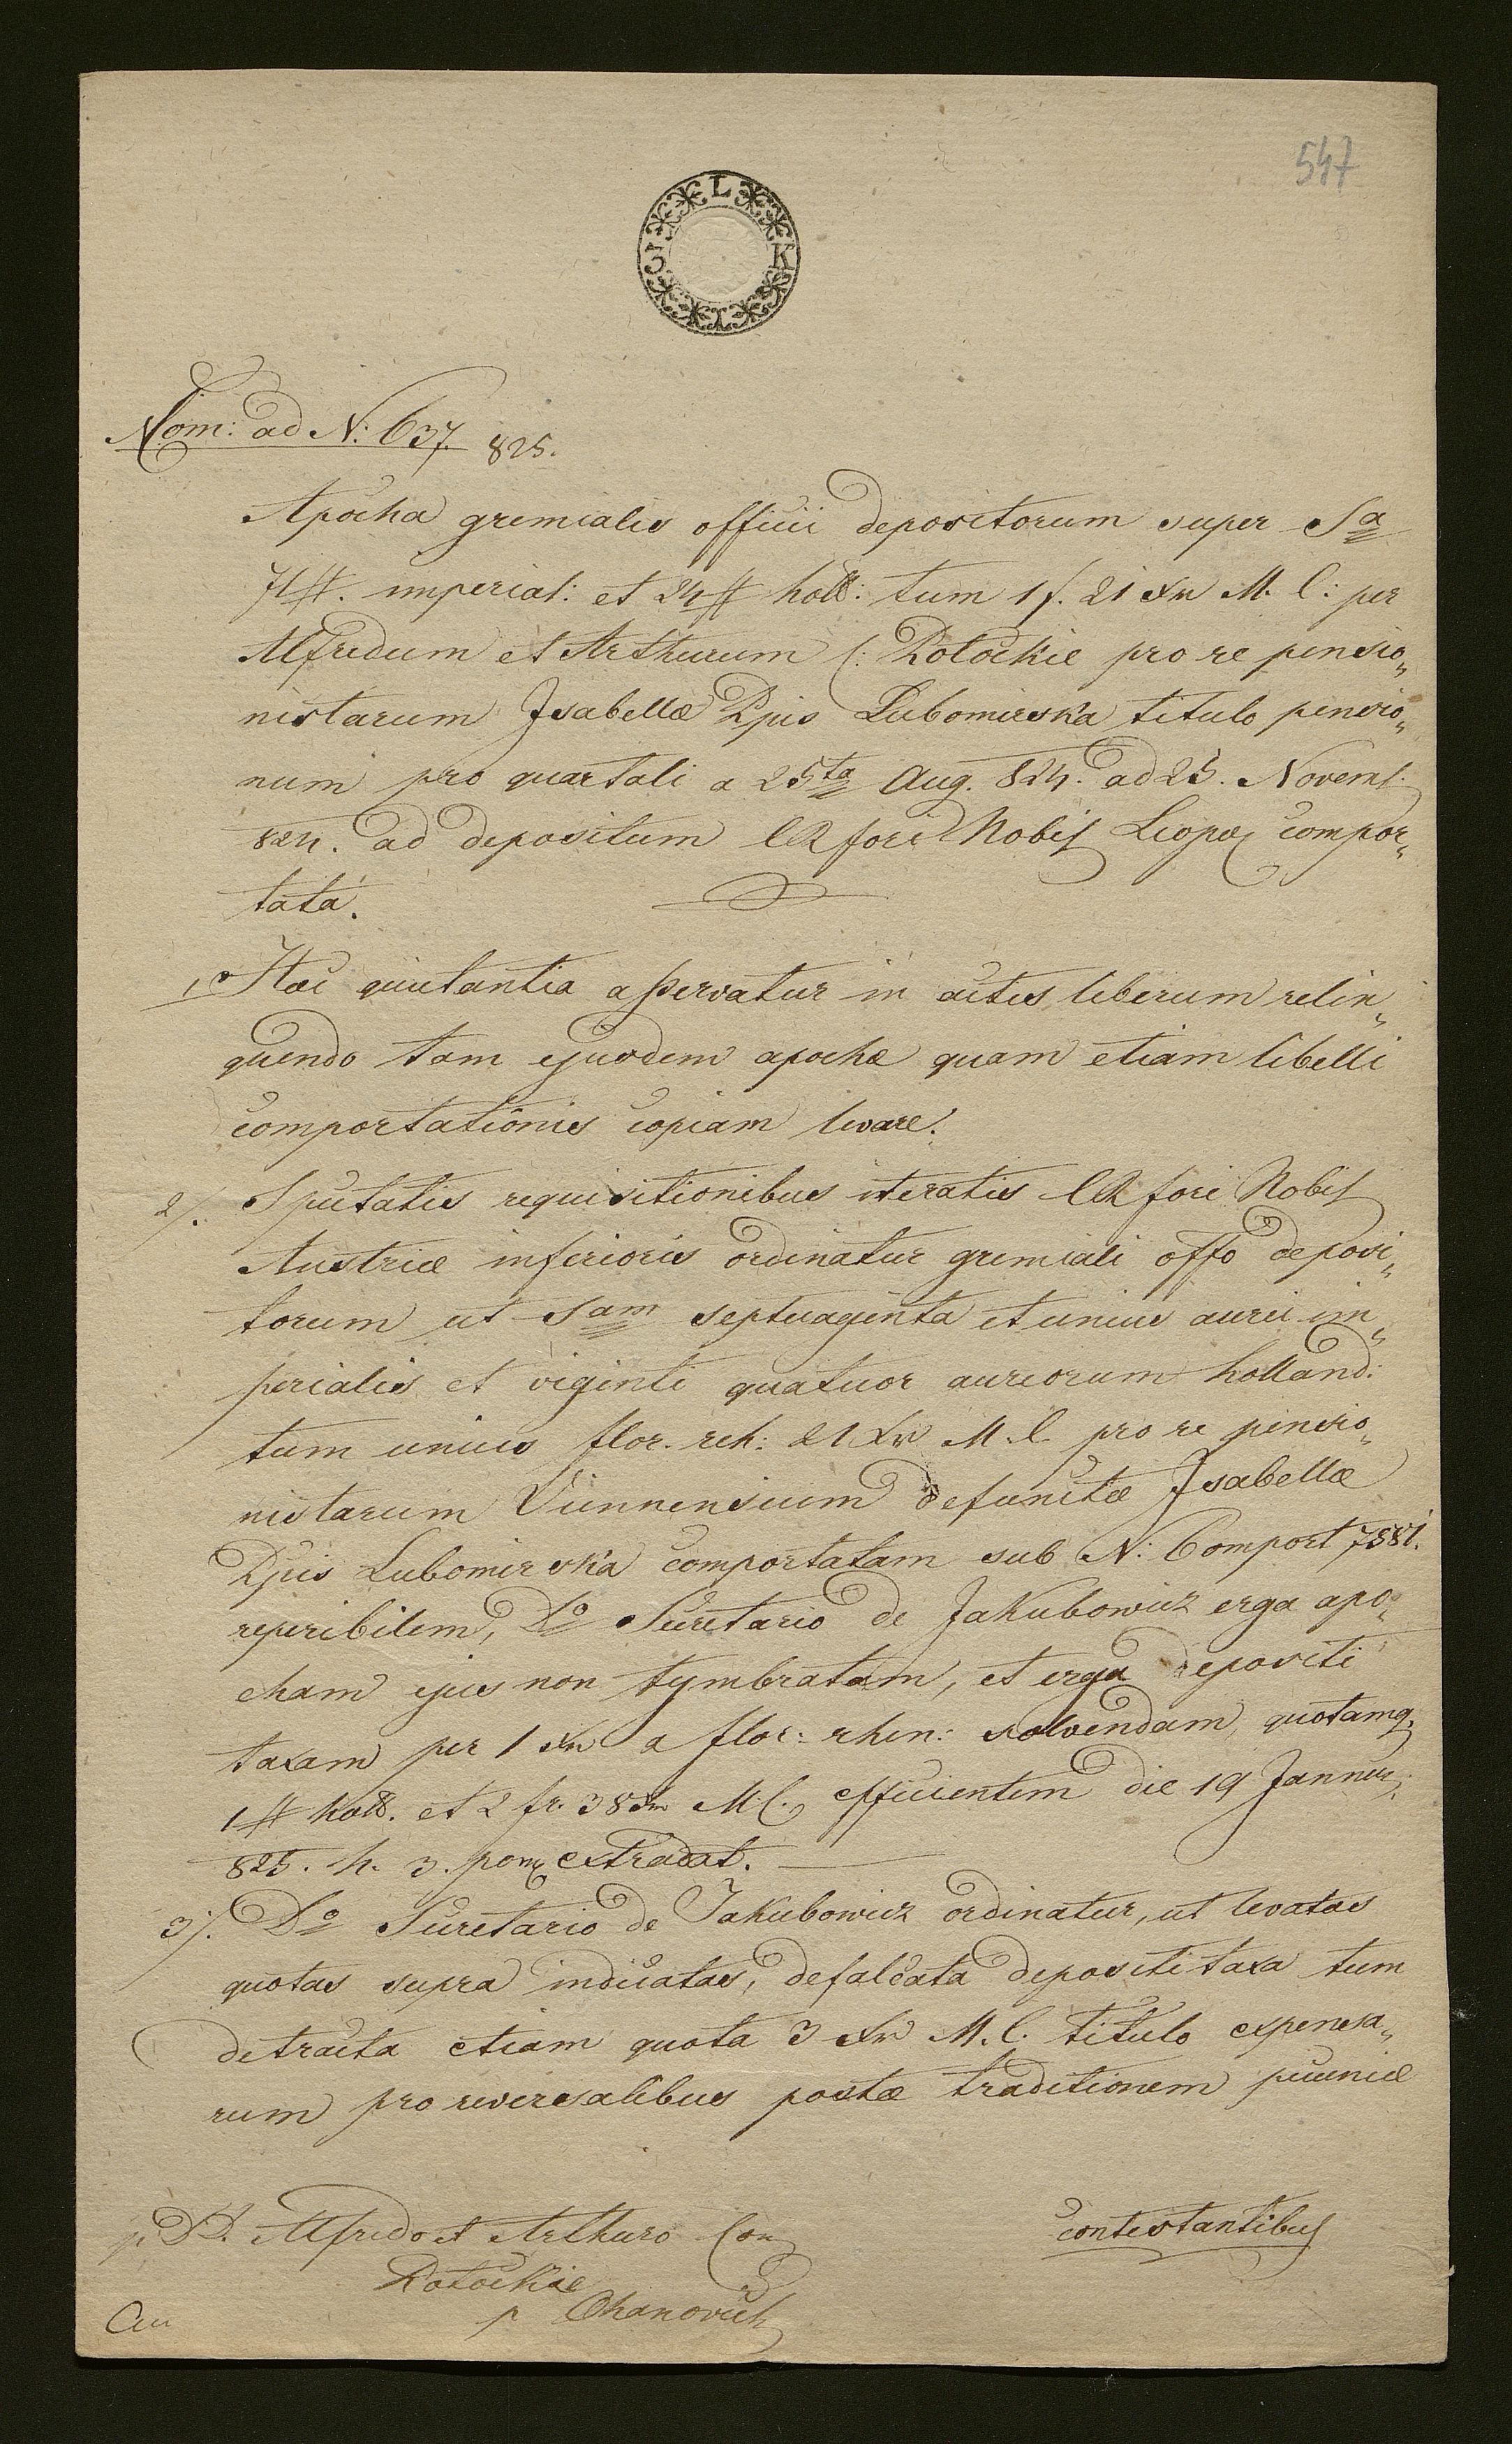 547
L
3 K
1
Nom: ad N: 637. 825.
Apocha gremialis officii depositorum super Sa
71 #. imperial: et 24 # holl: tum 1 f. 21 Xr M. C: per
Alfredum et Arthurum C: Potockie pro re pensio„
nistarum Isabellæ Ppis Lubomirska titulo pensio„
num pro quartali a 25ta Aug. 824. ad 25. Novemb.
824. ad depositum CR fori Nobil Leopol compor„
tata.
1o Hæc quietantia asservatur in actis, liberum relin„
quendo tam ejusdem apochæ quam etiam libelli
comportationis copiam levare.
2/. Spectatis requisitionibus iteratis CR fori Nobil
Austriæ inferioris ordinatur gremiali offo deposi„
torum ut Sam septuaginta et unius aurei im„
perialis et viginti quatuor aureorum holland:
tum unius flor. rh: 21 Xr M. C. pro re pensio„
nistarum Viennensium defunctæ Isabellæ
Ppis Lubomirska comportatam sub N: Comport 7881.
reperibilem, Do Secretario de Jakubowicz erga apo„
cham ejus non tymbratam, et erga depositi
taxam per 1 Xr a flor: rhen: solvendam, quotamq.
1 # holl. et 2 fr. 38 Xr M. C. efficientem die 19 Januar.
825. h. 3. pom extradat.
3/. Do Secretario de Jakubowicz ordinatur, ut levatas
quotas supra indicatas, defalcata depositi taxa tum
detracta etiam quota 3 Xr M. C. titulo expensa„
rum pro reversalibus postæ traditionem pecuniæ
contestantibus
p D. Alfredo et Arthuro Com
Potockie
p Chanovich